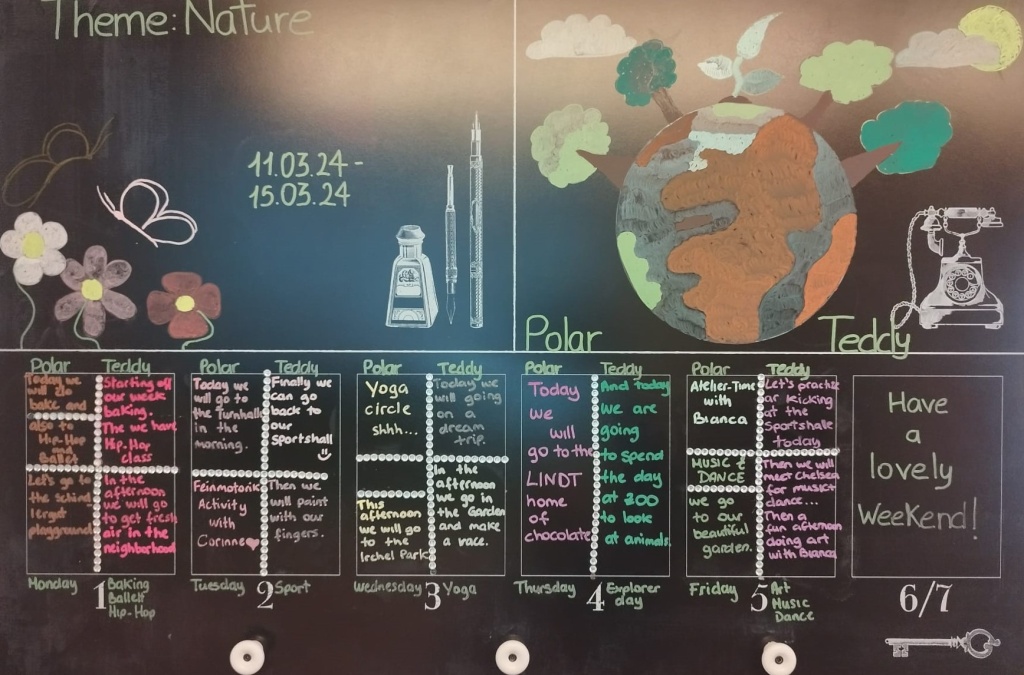 Theme: Nature
11.03.24 -
15.03.24
Polar
Teddy
Polar
Today we
will do
bake and
also to
Hip-Hop
and
Ballet
Let's go to
the Schind
lergut
playground
Teddy
Starting off
our week
baking.
The we have
Hip-Hop
class
In the
afternoon
we will go
to get fresh
air in the
neighborhood
Monday
1
Baking
Ballett
Hip-Hop
Polar
Today we
will go to
the Turnhalle
in the
morning.
Feinmotorik
Activity
with
Corinne
Teddy
Finally we
can go
back to
our
Sportshall
Then we
will paint
with our
fingers.
Tuesday
2
Sport
Polar
Yoga
circle
shhh...
This
afternoon
we will go
to the
Irchel Park
Teddy
Today we
will going
on a
dream
trip.
In the
afternoon
we go in
the Garden
and make
a race.
Wednesday
3
Yoga
Polar
Today
we
will
go to the
LINDT
home
of
chocolate
Teddy
And today
we are
going
to spend
the day
at ZOO
to look
at animals.
Thursday
4
Explorer
day
Polar
Atelier-Time
with
Bianca
MUSIC &
DANCE
we go
to our
beautiful
garden.
Teddy
Let's practise
ar kicking
at the
Sportshalle
today
Then we will
meet Chelsea
for music+
dance...
Then a
fun afternoon
doing art
with Bianca
Friday
5
Art
Music
Dance
Have
a
lovely
Weekend!
6/7